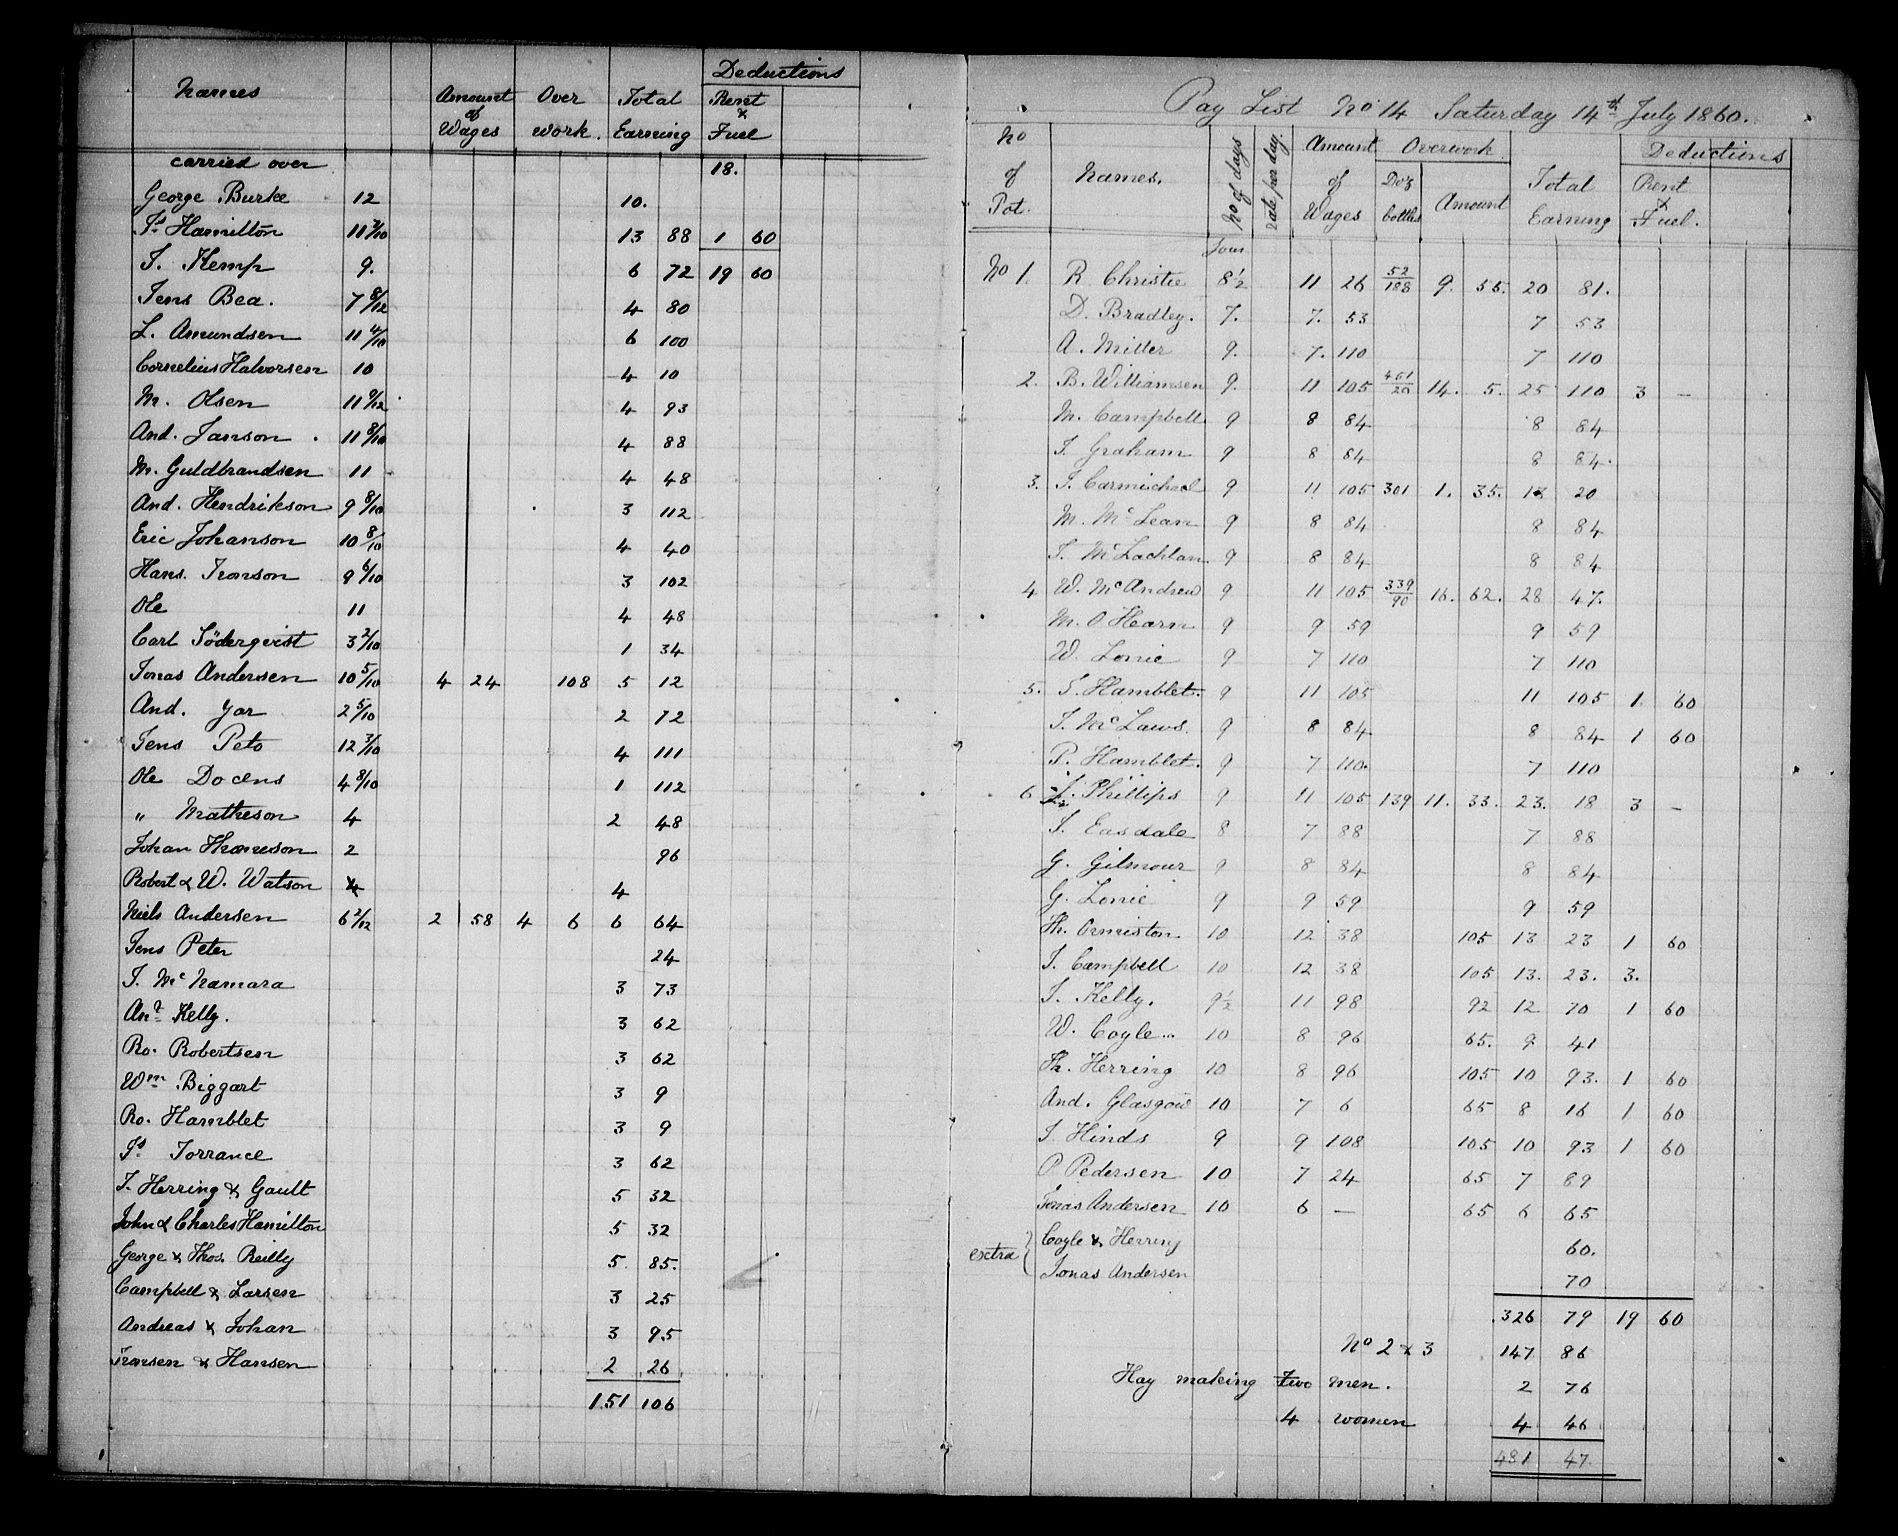 Names Amount of Wages Over work. Total Earning Deductions Rent & Fuel
carried over 18.
George Burke 12 10.
Js Hamilton 11 2/10 13 88 1 60
J. Kemp 9. 6 72 19 60
Jens Bea. 7 8/12 4 80
L. Amundsen 11 4/10 6 100
Cornelius Halvorsen 10 4 10
M. Olsen 11 9/12 4 93
And. Janson 11 8/10 4 88
M. Guldbrandsen 11 4 48
And. Hendrikson 9 8/10 3 112
Eric Johanson 10 8/10 4 40
Hans. Ironson 9 6/10 3 102
Ole 11 4 48
Carl Söderqvist 3 2/10 1 34
Jonas Andersen 10 5/10 4 24 108 5 12
And. Yor 2 5/10 2 72
Jens Peto 12 3/10 4 111
Ole Docens 4 8/10 1 112
" Matheson 4 2 48
Johan Thomeson 2 96
Robert & W. Watson 4 4
Niels Andersen 6 2/12 2 58 4 6 6 64
Jens Peter 24
J. McNamara 3 73
Anw Kelly. 3 62
Ro. Robertsen 3 62
Wm Biggart 3 9
Ro. Hamblet 3 9
Js Torrance 3 62
J. Herring & Gault 5 32
John & Charles Hamilton 5 32
George & Thos. Reilly 5 85.
Campbell & Larsen 3 25
Andreas & Johan 3 95
Ironsen & Hansen 2 26
151 106
Pay List No 14 Saturday 14th July 1860.
No of Pot. Names. No of days rate per day. Amount of Wages Overwork Doz bottles Amount Total Earning Deductions Rent & Fuel.
Jour
No 1. R Christie 8 1/2 11 26 52/188 9. 55. 20 81.
D. Bradley. 7. 7. 53 7 53
A. Miller 9. 7. 110 7 110
2. B. Williamsen 9. 11 105 451/20 14. 5. 25 110 3 —
M. Campbell 9 8 84 8 84
J. Graham 9 8 84 8 84.
3. J. Carmichael 9 11 105 301 1. 35. 13 20
M. McLean 9 8 84 8 84
J. McLachlan 9 8 84 8 84
4 W. McAndrew 9 11 105 339/90 16. 62. 28 47.
M. O Hearn 9 9 59 9 59
W. Lonie 9 7 110 7 110
5. S. Hamblet. 9 11 105 11 105 1. 60
J. McLaws. 9 8 84 8 84 1 60
P. Hamblet. 9 7 110. 7 110
6 J. Phillips 9 11 105 139 11. 33. 23. 18 3 —
J. Easdale 8 7 88 7 88
G. Gilmour 9 8 84 8 84
G. Lonie 9 9 59 9 59
Th. Ormiston 10 12 38 105 13 23 1 60
J. Campbell 10 12 38 105 13. 23. 3.
J. Kelly. 9 1/2 11 98 92 12 70 1 60
W. Coyle 10 8 96 65. 9 41
Th. Herring 10 8 96 105 10 93. 1 60
And. Glasgow 10 7 6 65 8 16 1 60
J. Hinds 9 9 108 105 10 93 1 60
P. Pedersen 10 7 24 65 7 89
Jonas Andersen 10 6 — 65 6 65
extra { Coyle & Herring 60.
Jonas Andersen 70
326 79 19 60
No 2 & 3 147 86
Hay making two men. 2 76
4 women 4 46
481 47